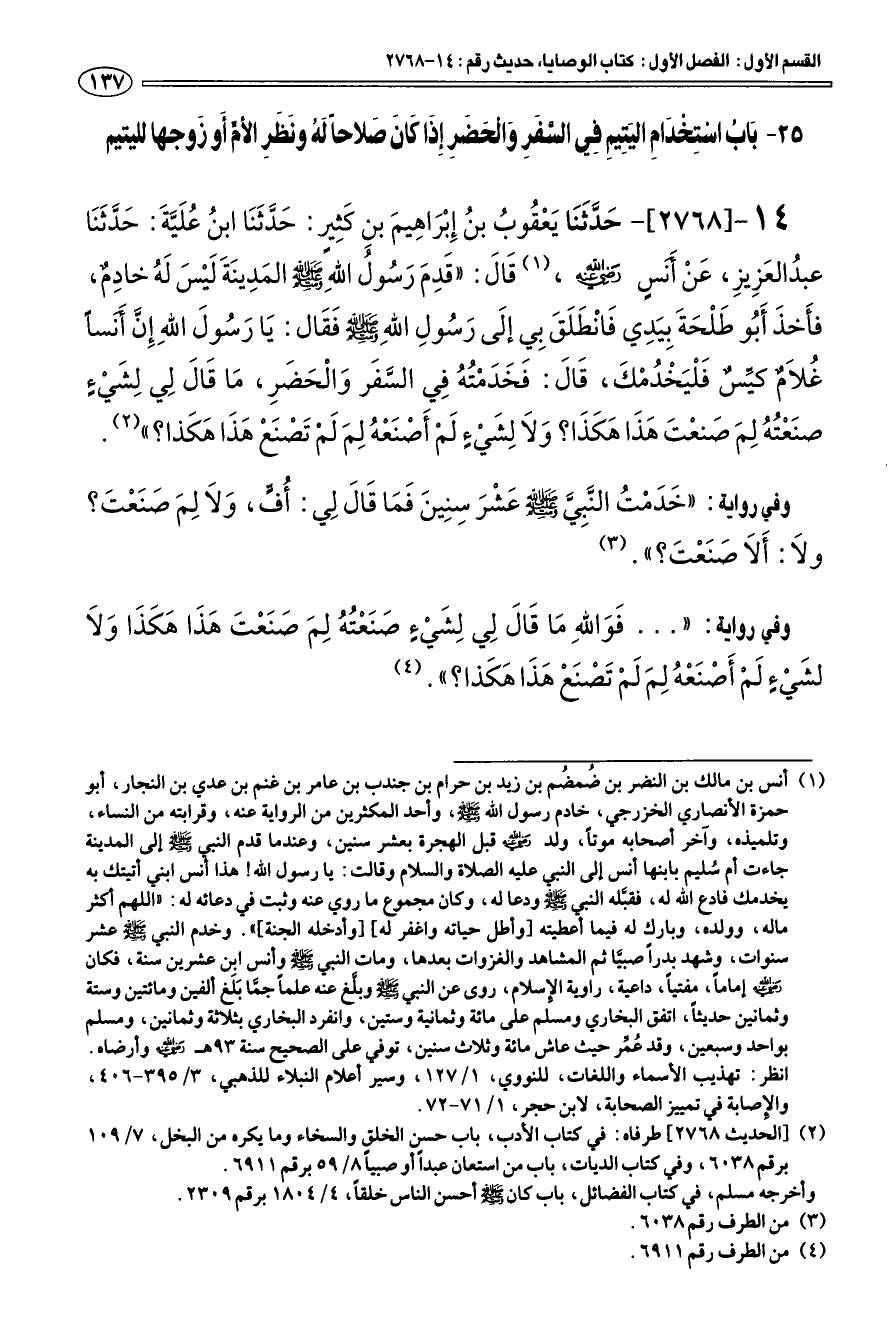 القسم الأول: الفصل الأول: كتاب الوصايا، حديث رقم: ١٤-٢٧٦٨
١٣٧
٢٥- بَابُ اسْتِخْدَامِ اليَتِيمِ فِي السَّفَرِ وَالْحَضَرِ إِذَا كَانَ صَلَاحاً لَهُ ونَظَرِ الأمِّ أو زَوجها لليتيم
١٤-[٢٧٦٨]- حَدَّثَنَا يَعْقُوبُ بنُ إِبْرَاهِيمَ بنِ كَثِيرٍ: حَدَّثَنَا ابنُ عُلَيَّةَ: حَدَّثَنَا
عبدُالعَزِيزِ، عَنْ أَنَسٍ ﵁، (١) قَالَ: «قَدِمَ رَسُولُ اللهِ ﷺ المَدِينَةَ لَيْسَ لَهُ خادِمٌ،
فأخذَ أَبُو طَلْحَةَ بِيَدِي فَانْطَلَقَ بِي إلَى رَسُولِ اللهِ ﷺ فَقَال: يَا رَسُولَ اللهِ إِنَّ أَنَساً
غُلَامٌ كَيِّسٌ فَلْيَخْدُمْكَ، قَالَ: فَخَدَمْتُهُ فِي السَّفَر وَالْحَضَرِ، مَا قَالَ لِي لِشَيْءٍ
صنَعْتُهُ لِمَ صَنعْتَ هَذَا هَكَذَا؟ وَلَا لِشَيْءٍ لَمْ أَصْنَعْهُ لِمَ لَمْ تَصْنَعْ هَذَا هَكَذا؟» (٢).
وفي رواية: «خَدَمْتُ النَّبِيَّ ﷺ عَشْرَ سِنِينَ فَمَا قَالَ لِي: أُفٍّ، وَلَا لِمَ صَنَعْتَ؟
ولَا: أَلَا صَنَعْتَ؟». (٣)
وفي رواية: «... فَوَاللهِ مَا قَالَ لِي لِشَيْءٍ صَنَعْتُهُ لِمَ صَنَعْتَ هَذَا هَكَذَا وَلَا
لشَيْءٍ لَمْ أَصْنَعْهُ لِمَ لَمْ تَصْنَعْ هَذَا هَكَذا؟». (٤)
(١) أنس بن مالك بن النضر بن ضُمضُم بن زيد بن حرام بن جندب بن عامر بن غنم بن عدي بن النجار، أبو
حمزة الأنصاري الخزرجي، خادم رسول الله ﷺ، وأحد المكثرين من الرواية عنه، وقرابته من النساء،
وتلميذه، وآخر أصحابه موتاً، ولد ﵁ قبل الهجرة بعشر سنين، وعندما قدم النبي ﷺ إلى المدينة
جاءت أم سُليم بابنها أنس إلى النبي عليه الصلاة والسلام وقالت: يا رسول الله! هذا أنس ابني أتيتك به
يخدمك فادع الله له، فقبَّله النبي ﷺ ودعا له، وكان مجموع ما روي عنه وثبت في دعائه له: «اللهم أكثر
ماله، وولده، وبارك له فيما أعطيته [وأطل حياته واغفر له] [وأدخله الجنة]». وخدم النبي ﷺ عشر
سنوات، وشهد بدراً صبيًّا ثم المشاهد والغزوات بعدها، ومات النبي ﷺ وأنس ابن عشرين سنة، فكان
﵁ إماماً، مفتياً، داعية، راوية الإسلام، روى عن النبي ﷺ وبلَّغ عنه علماً جمًّا بَلَغ ألفين ومائتين وستة
وثمانين حديثاً، اتفق البخاري ومسلم على مائة وثمانية وستين، وانفرد البخاري بثلاثة وثمانين، ومسلم
بواحد وسبعين، وقد عُمِّر حيث عاش مائة وثلاث سنين، توفي على الصحيح سنة ٩٣هـ ﵁ وأرضاه.
انظر: تهذيب الأسماء واللغات، للنووي، ١/ ١٢٧، وسير أعلام النبلاء للذهبي، ٣/ ٣٩٥-٤٠٦،
والإصابة في تمييز الصحابة، لابن حجر، ١/ ٧١-٧٢.
(٢) [الحديث ٢٧٦٨] طرفاه: في كتاب الأدب، باب حسن الخلق والسخاء وما يكره من البخل، ٧/ ١٠٩
برقم ٦٠٣٨، وفي كتاب الديات، باب من استعان عبداً أو صبياً ٨/ ٥٩ برقم ٦٩١١.
وأخرجه مسلم، في كتاب الفضائل، باب كان ﷺ أحسن الناس خلقاً، ٤/ ١٨٠٤ برقم ٢٣٠٩.
(٣) من الطرف رقم ٦٠٣٨.
(٤) من الطرف رقم ٦٩١١.